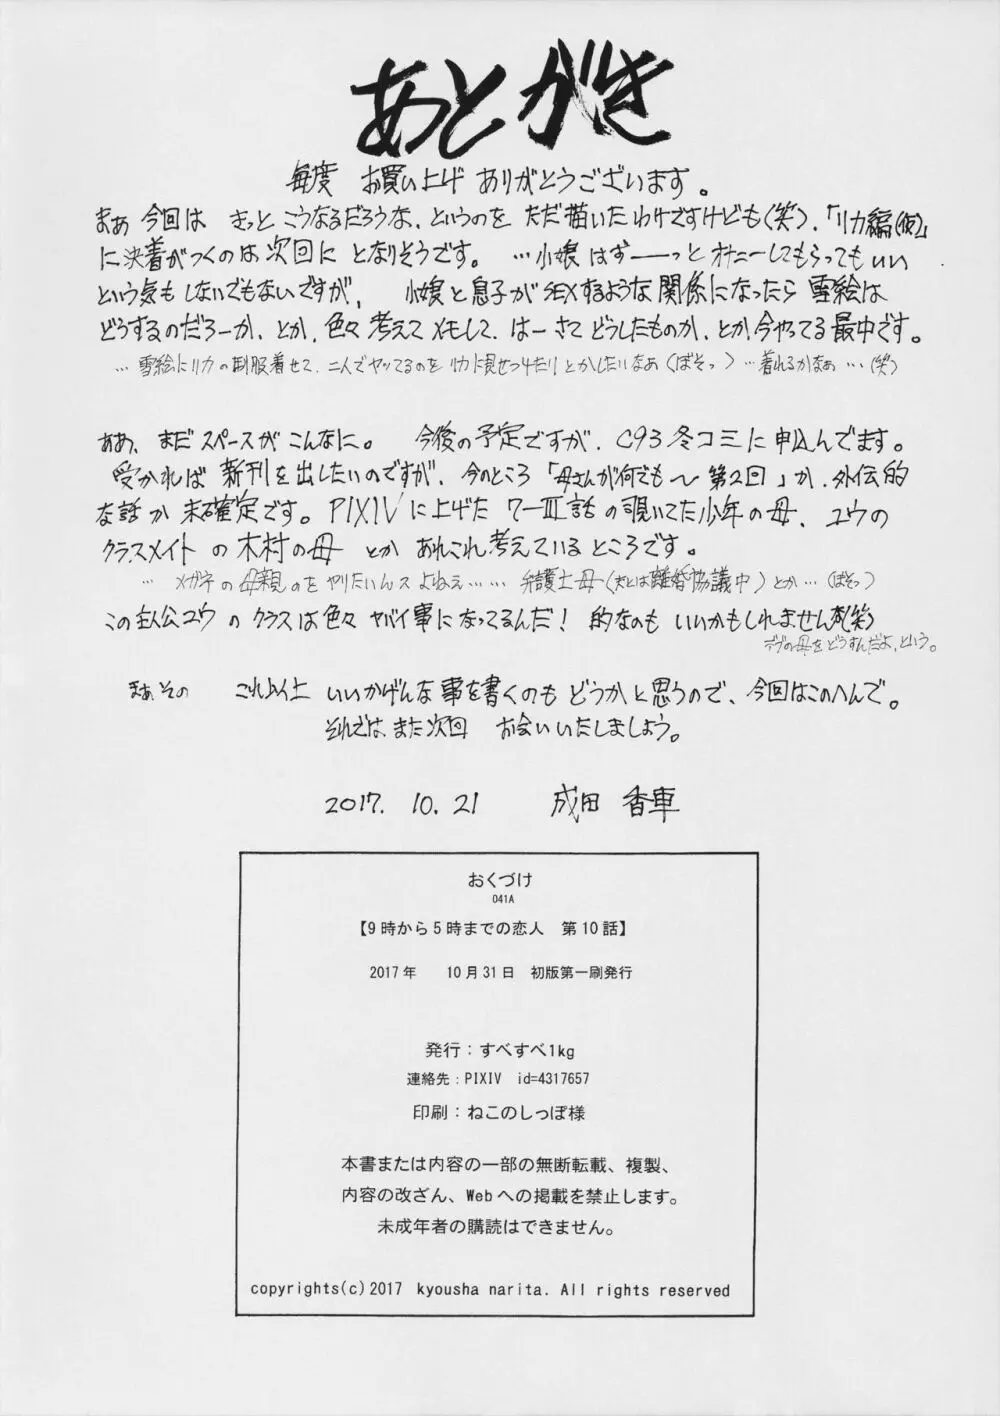 あとがき
毎度 お買い上げ ありがとうございます。
まぁ 今回は きっと こうなるだろうな、というのを ただ描いたわけですけども(笑)、「リカ編(仮)」
に決着がつくのは次回に となりそうです。 …小娘はずーーっと オナニーしてもらってもいい
という気もしないでもないですが、 小娘と息子がSEXするような関係になったら 雪絵は
どうするのだろーか、とか、色々考えてメモして、はーさてどうしたものか、とか今やってる最中です。
…雪絵にリカの制服着せて、二人でヤッてるのを リカに見せつけたりとかしたいなぁ(ぼそっ) …着れるかなぁ…(笑)
ああ、まだスペースが こんなに。 今後の予定ですが、C93冬コミに申込んでます。
受かれば 新刊を出したいのですが、今のところ「母さんが何でも〜第2回」か、外伝的
な話か 未確定です。PIXIVに上げた 7-III話の覗いてた少年の母、ユウの
クラスメイトの木村の母 とか あれこれ考えているところです。
… メガネの母親のをやりたいんスよねぇ…… 弁護士母(夫とは離婚協議中)とか…(ぼそっ)
この主人公ユウのクラスは色々ヤバイ事になってるんだ! 的なのも いいかもしれませんが(笑)
デブの母をどうすんだよ、という。
まぁ、その これ以上 いいかげんな事を書くのも どうかと思うので、今回はこのへんで。
それでは、また次回 お会いいたしましょう。
2017. 10. 21 成田 香車
おくづけ
041A
【9時から5時までの恋人 第10話】
2017年 10月31日 初版第一刷発行
発行：すべすべ1kg
連絡先：PIXIV id=4317657
印刷：ねこのしっぽ様
本書または内容の一部の無断転載、複製、
内容の改ざん、Webへの掲載を禁止します。
未成年者の購読はできません。
copyrights(c)2017 kyousha narita. All rights reserved